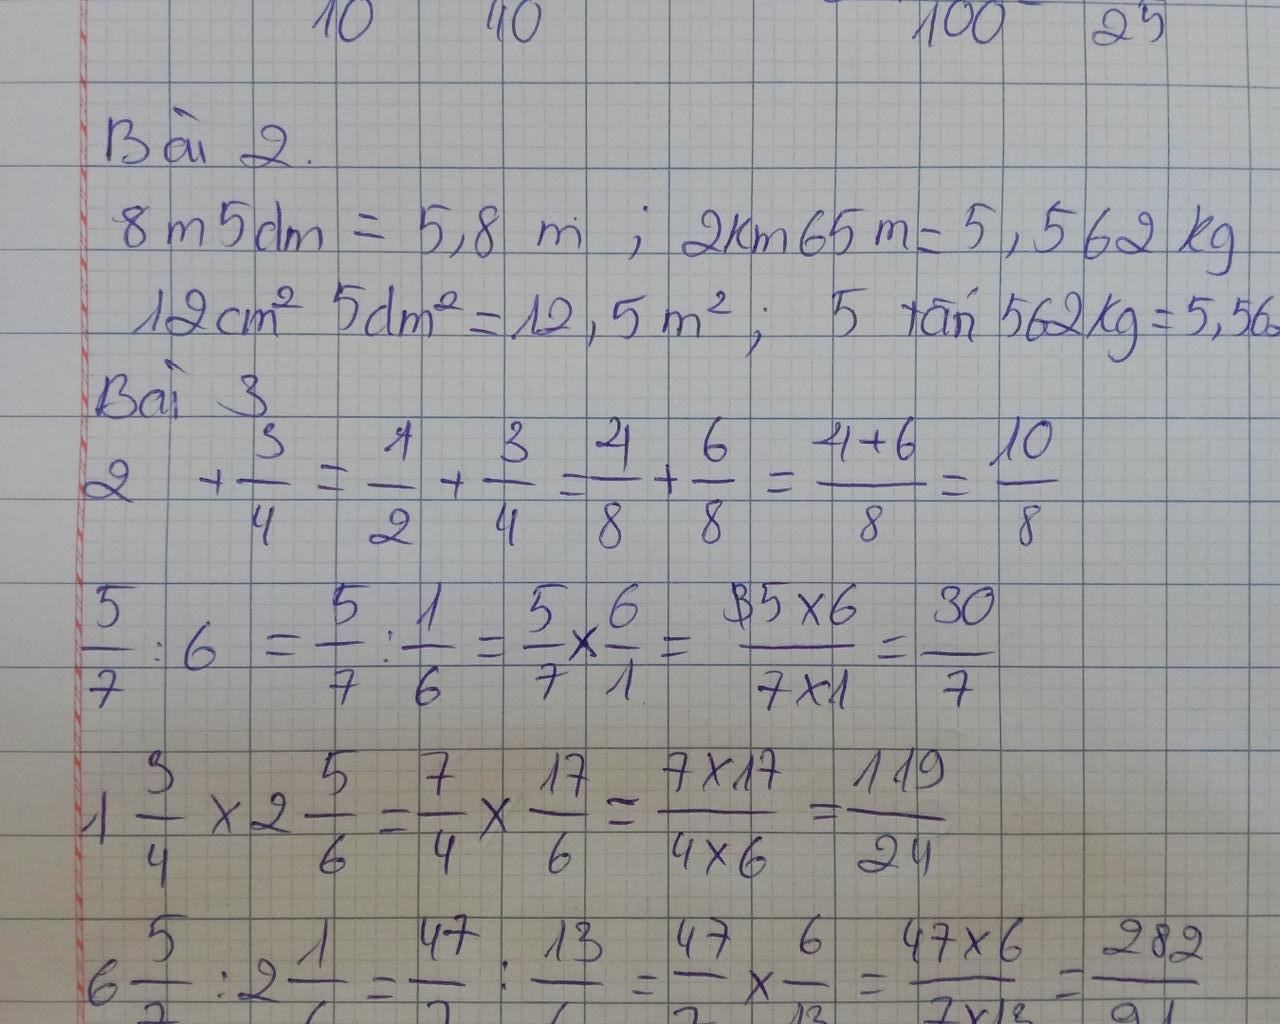 10 40 100 25
Bài 2.
8m5dm = 5,8 m ; 2km65m = 5,562 kg
12cm² 5dm² = 12,5 m² ; 5 tấn 562kg = 5,562
Bài 3
2 + 3/4 = 1/2 + 3/4 = 4/8 + 6/8 = (4+6)/8 = 10/8
5/7 : 6 = 5/7 : 1/6 = 5/7 × 6/1 = (5×6)/(7×1) = 30/7
1 3/4 × 2 5/6 = 7/4 × 17/6 = (7×17)/(4×6) = 119/24
6 5/7 : 2 1/6 = 47/7 : 13/6 = 47/7 × 6/13 = (47×6)/(7×13) = 282/91